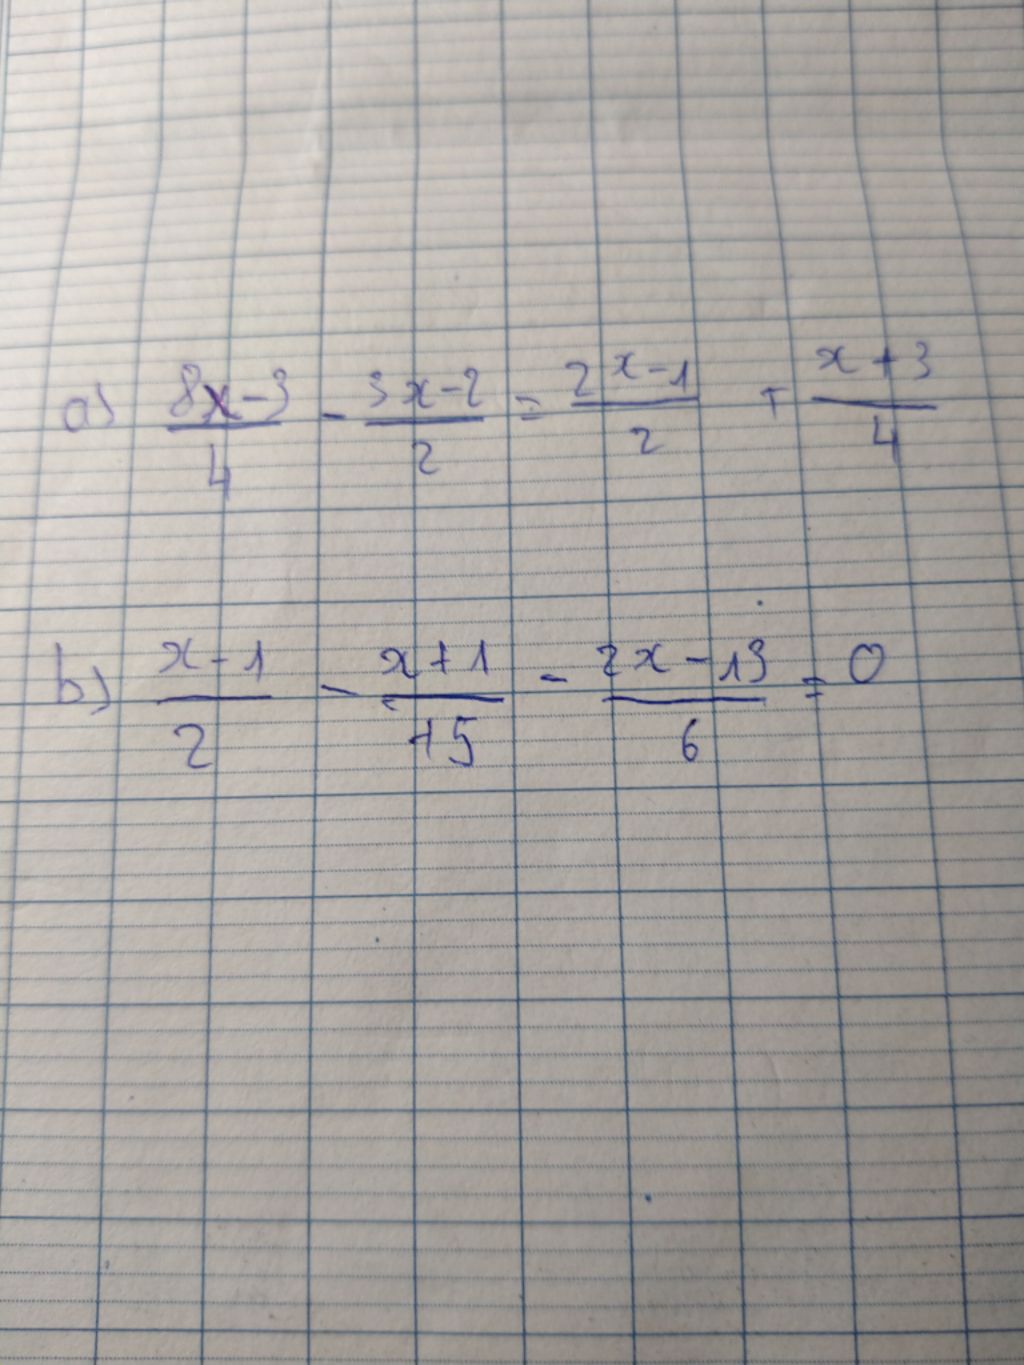 a) \frac{8x-3}{4} - \frac{3x-2}{2} = \frac{2x-1}{2} + \frac{x+3}{4}
b) \frac{x-1}{2} - \frac{x+1}{15} - \frac{2x-13}{6} = 0